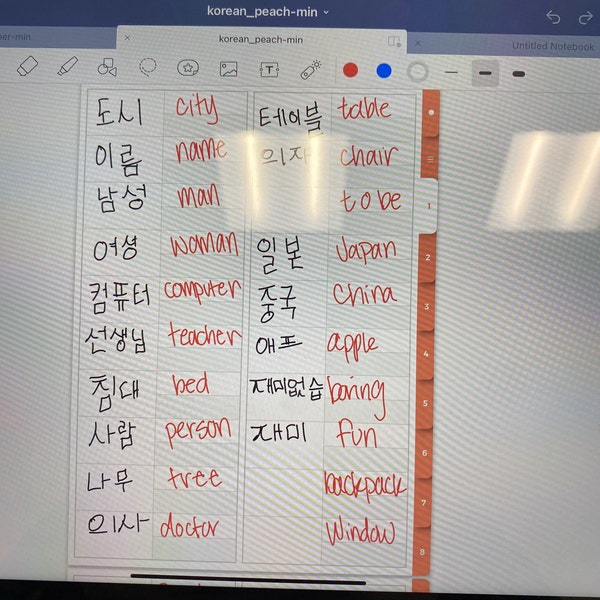 korean_peach-min
er-min
korean_peach-min
Untitled Notebook
도시 city 테이블 table
이름 name 의자 chair
남성 man to be
여셩 woman 일본 Japan
컴퓨터 computer 중국 China
선생님 teacher 애프 apple
침대 bed 재미없습 boring
사람 person 재미 fun
나무 tree backpack
의사 doctor Window
1
2
3
4
5
6
7
8